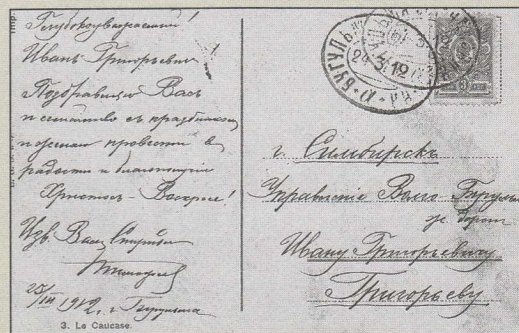 Глубокоуважаемый!
Иванъ Григорьевичъ!
Поздравляю Васъ
и семейство съ праздникомъ
и желаю провести въ
радости и
Христосъ-Воскресе!
Изв. Вамъ
25/III 1912 г. Бугульма
3. Le Caucase.
БУГУЛЬМ
24 3 12
г. Симбирскъ
Управленіе Волго-Бугульм.
ж. дороги
Ивану Григорьевичу
Григорьеву